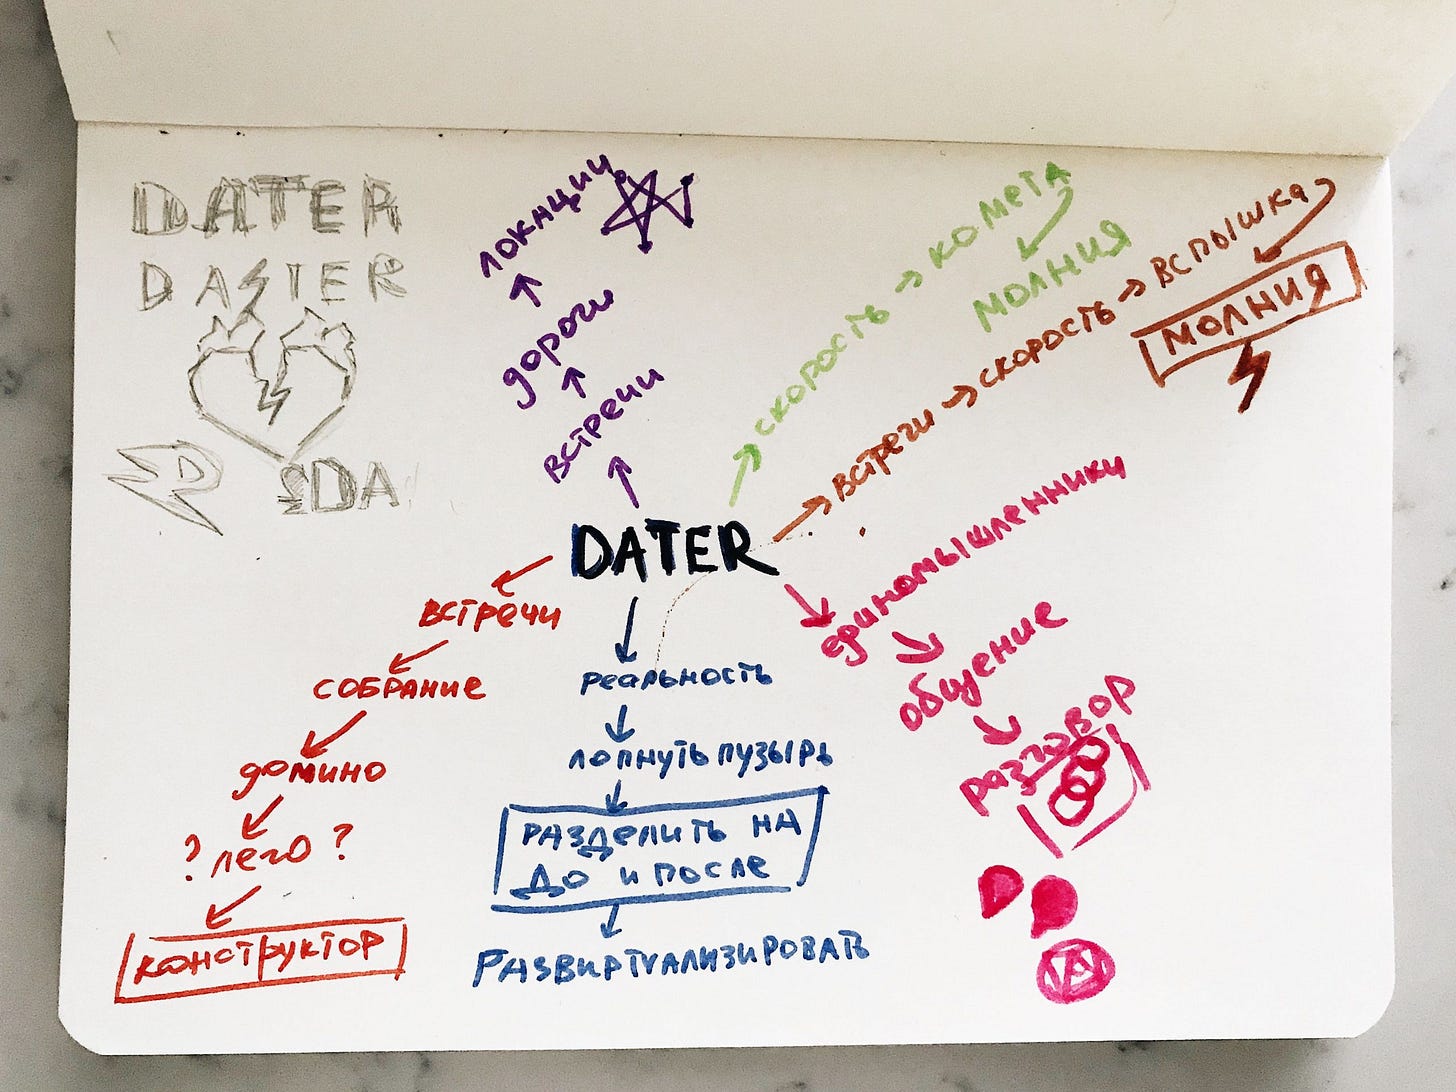 DATER
DATER
DA
локации
дороги
встречи
скорость → комета
молния
встречи → скорость → вспышка
молния
DATER
встречи
собрание
домино
? лего ?
конструктор
реальность
лопнуть пузырь
разделить на
до и после
развиртуализировать
единомышленники
общение
разговор